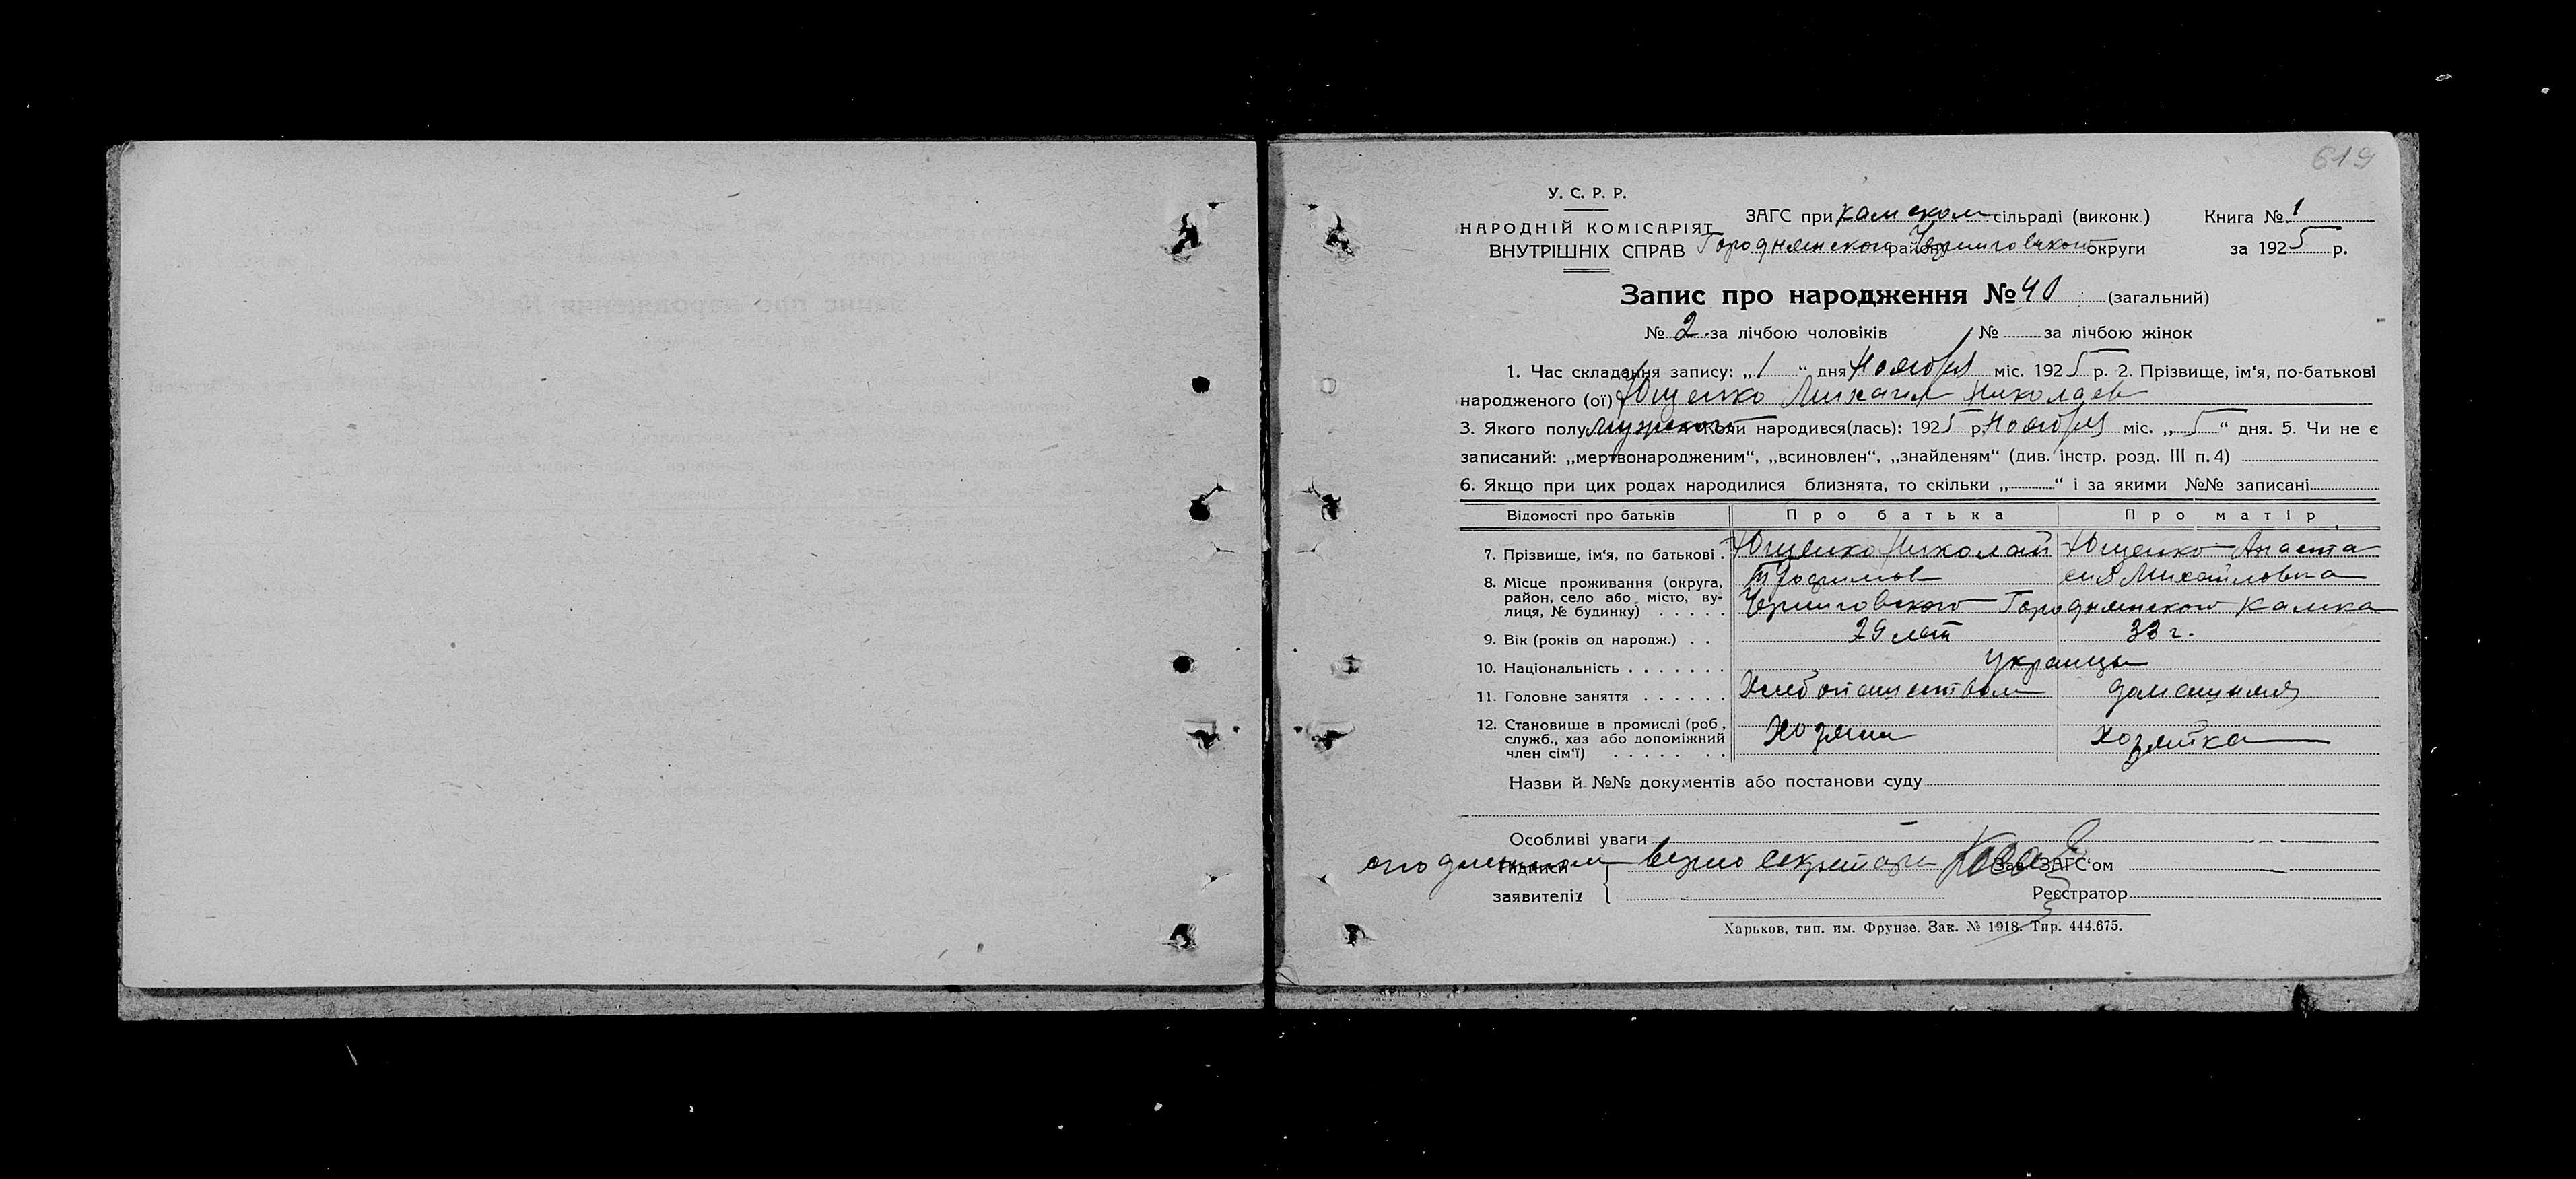 619
У. С. Р. Р.
НАРОДНІЙ КОМІСАРІЯТ
ВНУТРІШНІХ СПРАВ
ЗАГС при Камском сільраді (виконк)
Городнянского район Черниговской округи
Книга № 1
за 1925 р.
Запис про народження № 40 (загальний)
№ 2 за лічбою чоловіків № за лічбою жінок
1. Час складання запису: „1“ дня Ноября міс. 1925 р. 2. Прізвище, ім'я, по-батькові
народженого (ої) Ющенко Михаил Николаев
3. Якого полу мужского Коли народився(лась): 1925 р. Ноября міс. „5“ дня. 5. Чи не є
записаний: „мертвонародженим“, „всиновлен“, „знайденям“ (див. інстр. розд. III п. 4)
6. Якщо при цих родах народилися близнята, то скільки „ “ і за якими №№ записані
Відомості про батьків Про батька Про матір
7. Прізвище, ім'я, по батькові Ющенко Николай Ющенко Анаста
Трофимов сия Михайловна
8. Місце проживання (округа, район, село або місто, вулиця, № будинку) Черниговского Городнянского Камка
9. Вік (років од народж.) 29 лет 33 г.
10. Національність украинцы
11. Головне заняття Хлебопашеством домашняя
12. Становище в промислі (роб, служб., хаз або допоміжний член сім'ї) Хозяин Хозяйка
Назви й №№ документів або постанови суду
Особливі уваги
Підписи верно секретарь Зав. ЗАГС'ом
заявителів Реєстратор
Харьков, тип. им. Фрунзе. Зак. № 1918. Тир. 444.675.